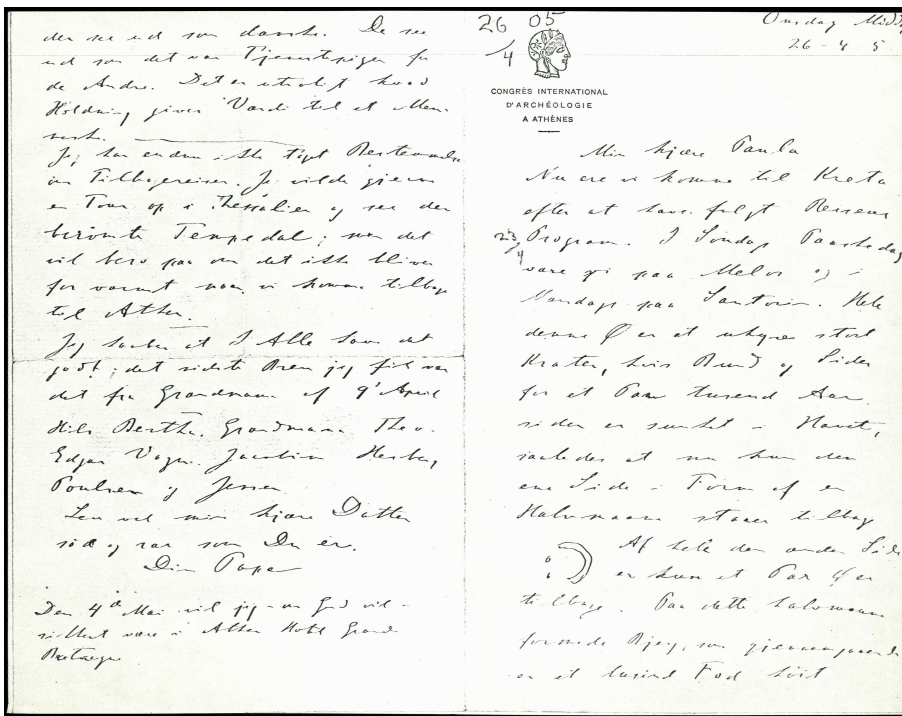 der see ud som danske. De see
ud som det var Tjenestepiger for
de Andre. Det er utroligt hvad
Holdning giver Værdi til et Men-
neske.
Jeg har endnu ikke taget Bestemmelse
om Tilbagereisen. Jeg vilde gjerne
en Tour op i Thessalien og see den
berömte Tempedal; men det
vil bero paa om det ikke bliver
for varmt naar vi komme tilbage
til Athen.
Jeg haaber at I Alle have det
godt; det sidste Brev jeg fik var
det fra Grandmama af 9' April
Hils Bertha, Grandmama Theo.
Edgar Vagn. Jacobine
Poulsen og Jensen
Lev vel min kjære Datter
sød og rar som Du er.
Din Papa
Den 4de Mai vil jeg - om Gud vil -
sikkert være i Athen Hotel Grande
Bretaegne
26 05
/4
Onsdag Midd
26 - 4 5
CONGRÈS INTERNATIONAL
D'ARCHÉOLOGIE
A ATHÈNES
Min kjære Paula
Nu ere vi komne til Kreta
efter at have fulgt Reisens
23/4
Program. I Söndags Paaskedag
vare vi paa Melos og i
Mandags paa Santorin. Hele
denne Ø er et uhyre stort
Krater, hvis Bund og Sider
for et Par tusend Aar
siden er sunket i Havet,
saaledes at nu kun den
ene Side i Form af en
Halvmaane staaer tilbage
Af hele den anden Side
er kun et Par Øer
tilbage. Paa dette halvmaane
formede Bjerg, som gjennemgaaende
er et tusind Fod høit